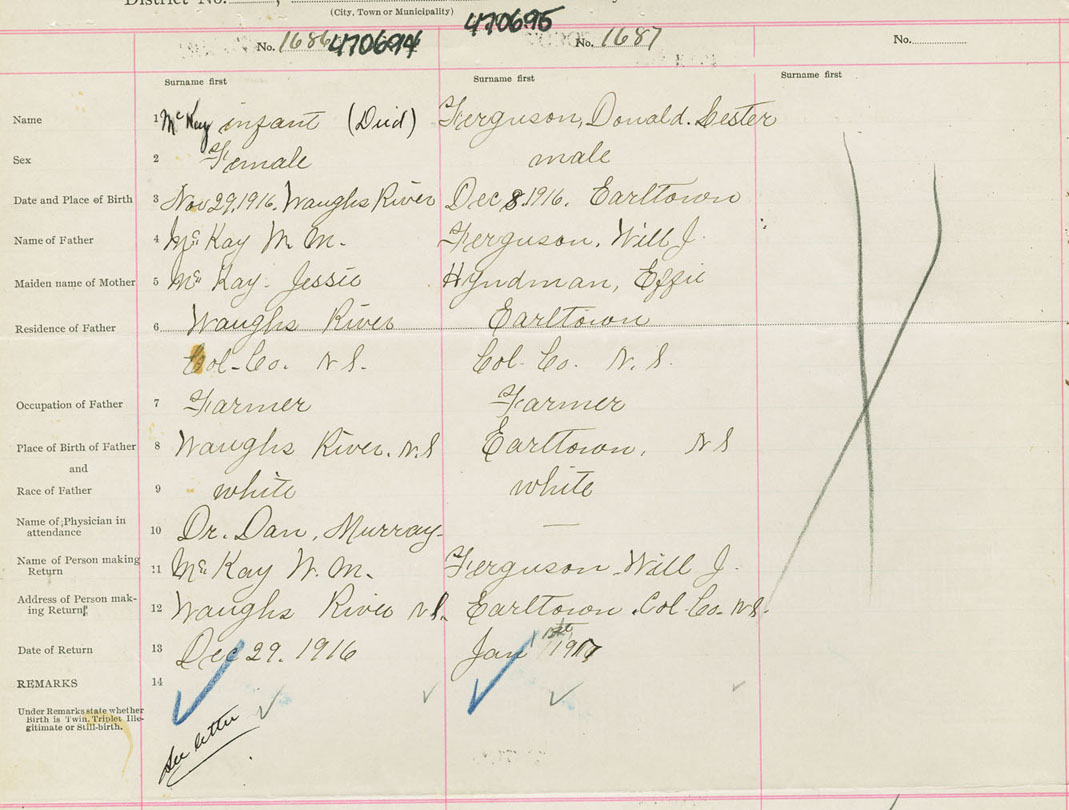 District No.
(City, Town or Municipality)
470695
No. 1686 470694 No. 1687 No.
Surname first Surname first Surname first
Name 1 McKay infant (Died) Ferguson, Donald. Lester
Sex 2 Female male
Date and Place of Birth 3 Nov 29, 1916. Waughs River Dec 8. 1916. Earltown
Name of Father 4 McKay W. M. Ferguson. Will J.
Maiden name of Mother 5 McKay. Jessie Hyndman, Effie
Residence of Father 6 Waughs River Earltown
Col-Co. N S. Col-Co. N. S.
Occupation of Father 7 Farmer Farmer
Place of Birth of Father 8 Waughs River. N.S Earltown, N S
and
Race of Father 9 white white
Name of Physician in
attendance 10 Dr. Dan, Murray —
Name of Person making
Return 11 McKay W. M. Ferguson Will J.
Address of Person mak-
ing Return 12 Waughs River N S. Earltown. Col-Co. N S.
Date of Return 13 Dec 29. 1916 Jan 1st 1917
REMARKS 14
Under Remarks state whether
Birth is Twin, Triplet Ille-
gitimate or Still-birth.
See letter